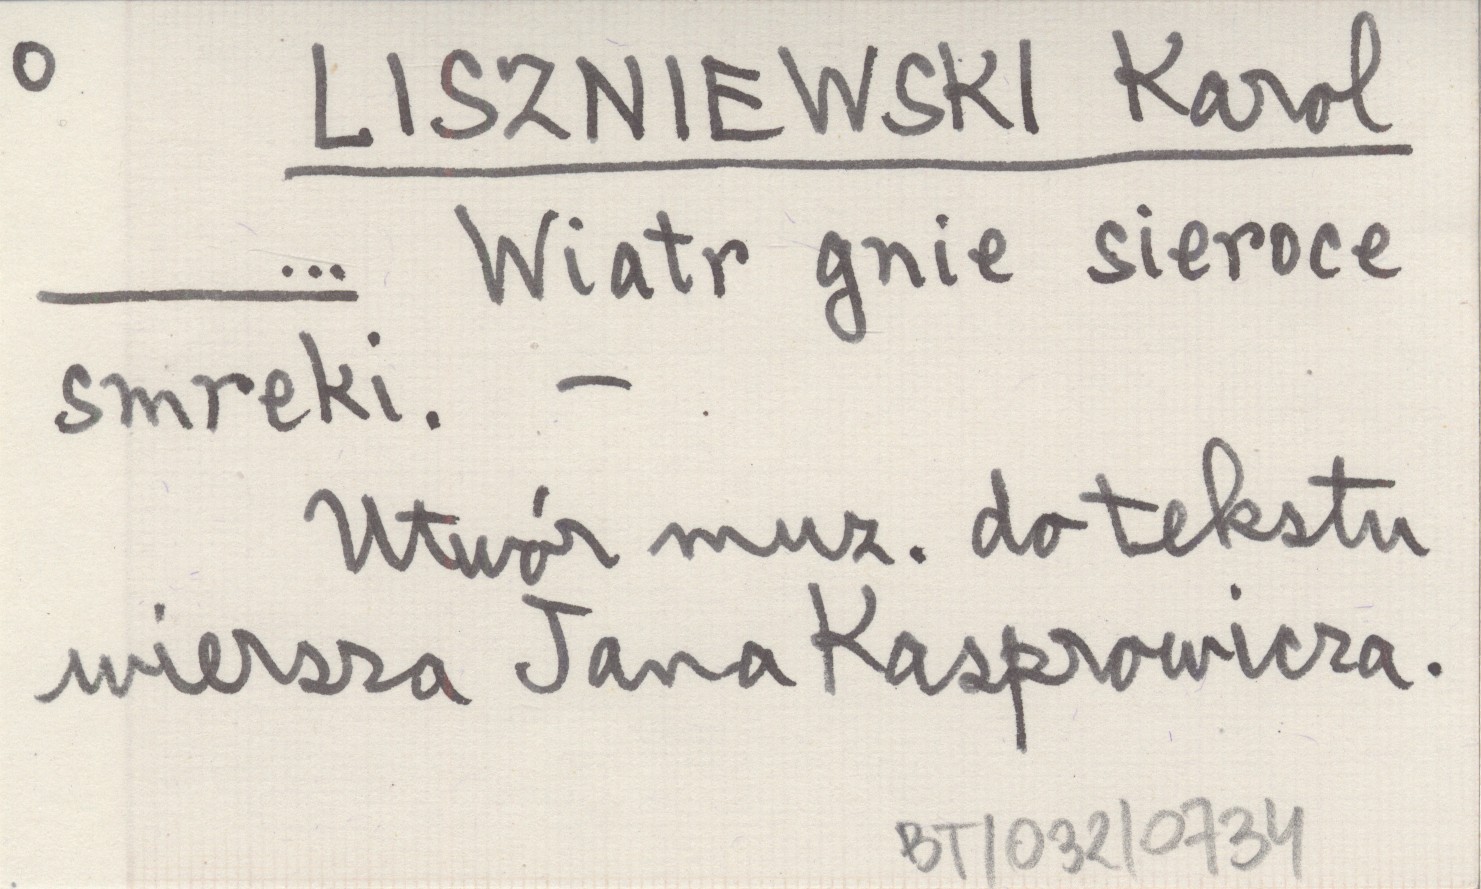 o LISZNIEWSKI Karol
... Wiatr gnie sieroce
smreki. –
Utwór muz. do tekstu
wiersza Jana Kasprowicza.
BT/032/0734